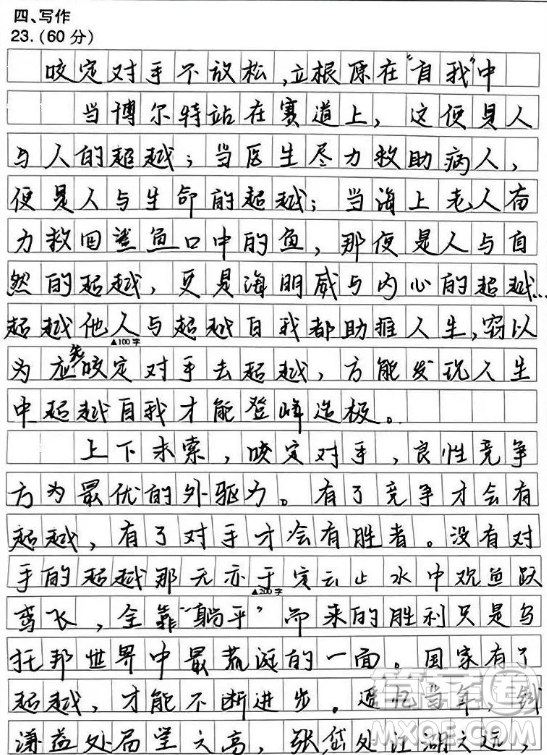 四、写作
23.(60 分)
咬定对手不放松,立根原在“自我”中
当博尔特站在赛道上,这便是人
与人的超越;当医生尽力救助病人,
便是人与生命的超越;当海上老人奋
力救回鲨鱼口中的鱼,那便是人与自
然的超越,更是海明威与内心的超越…
超越他人与超越自我都助推人生,窃以
▲100字
为应先咬定对手去超越,方能发现人生
中超越自我才能登峰造极。
上下求索,咬定对手,良性竞争
方为最优的外驱力。有了竞争才会有
超越,有了对手才会有胜者。没有对
手的超越那无亦于定云止水中观鱼跃
▲200字
鸢飞,全靠“躺平”而来的胜利只是乌
托邦世界中最荒诞的一面。国家有了
超越,才能不断进步。遥忆当年,钱
谦益处局望之高,张岱处江湖之远,
MXQE.COM